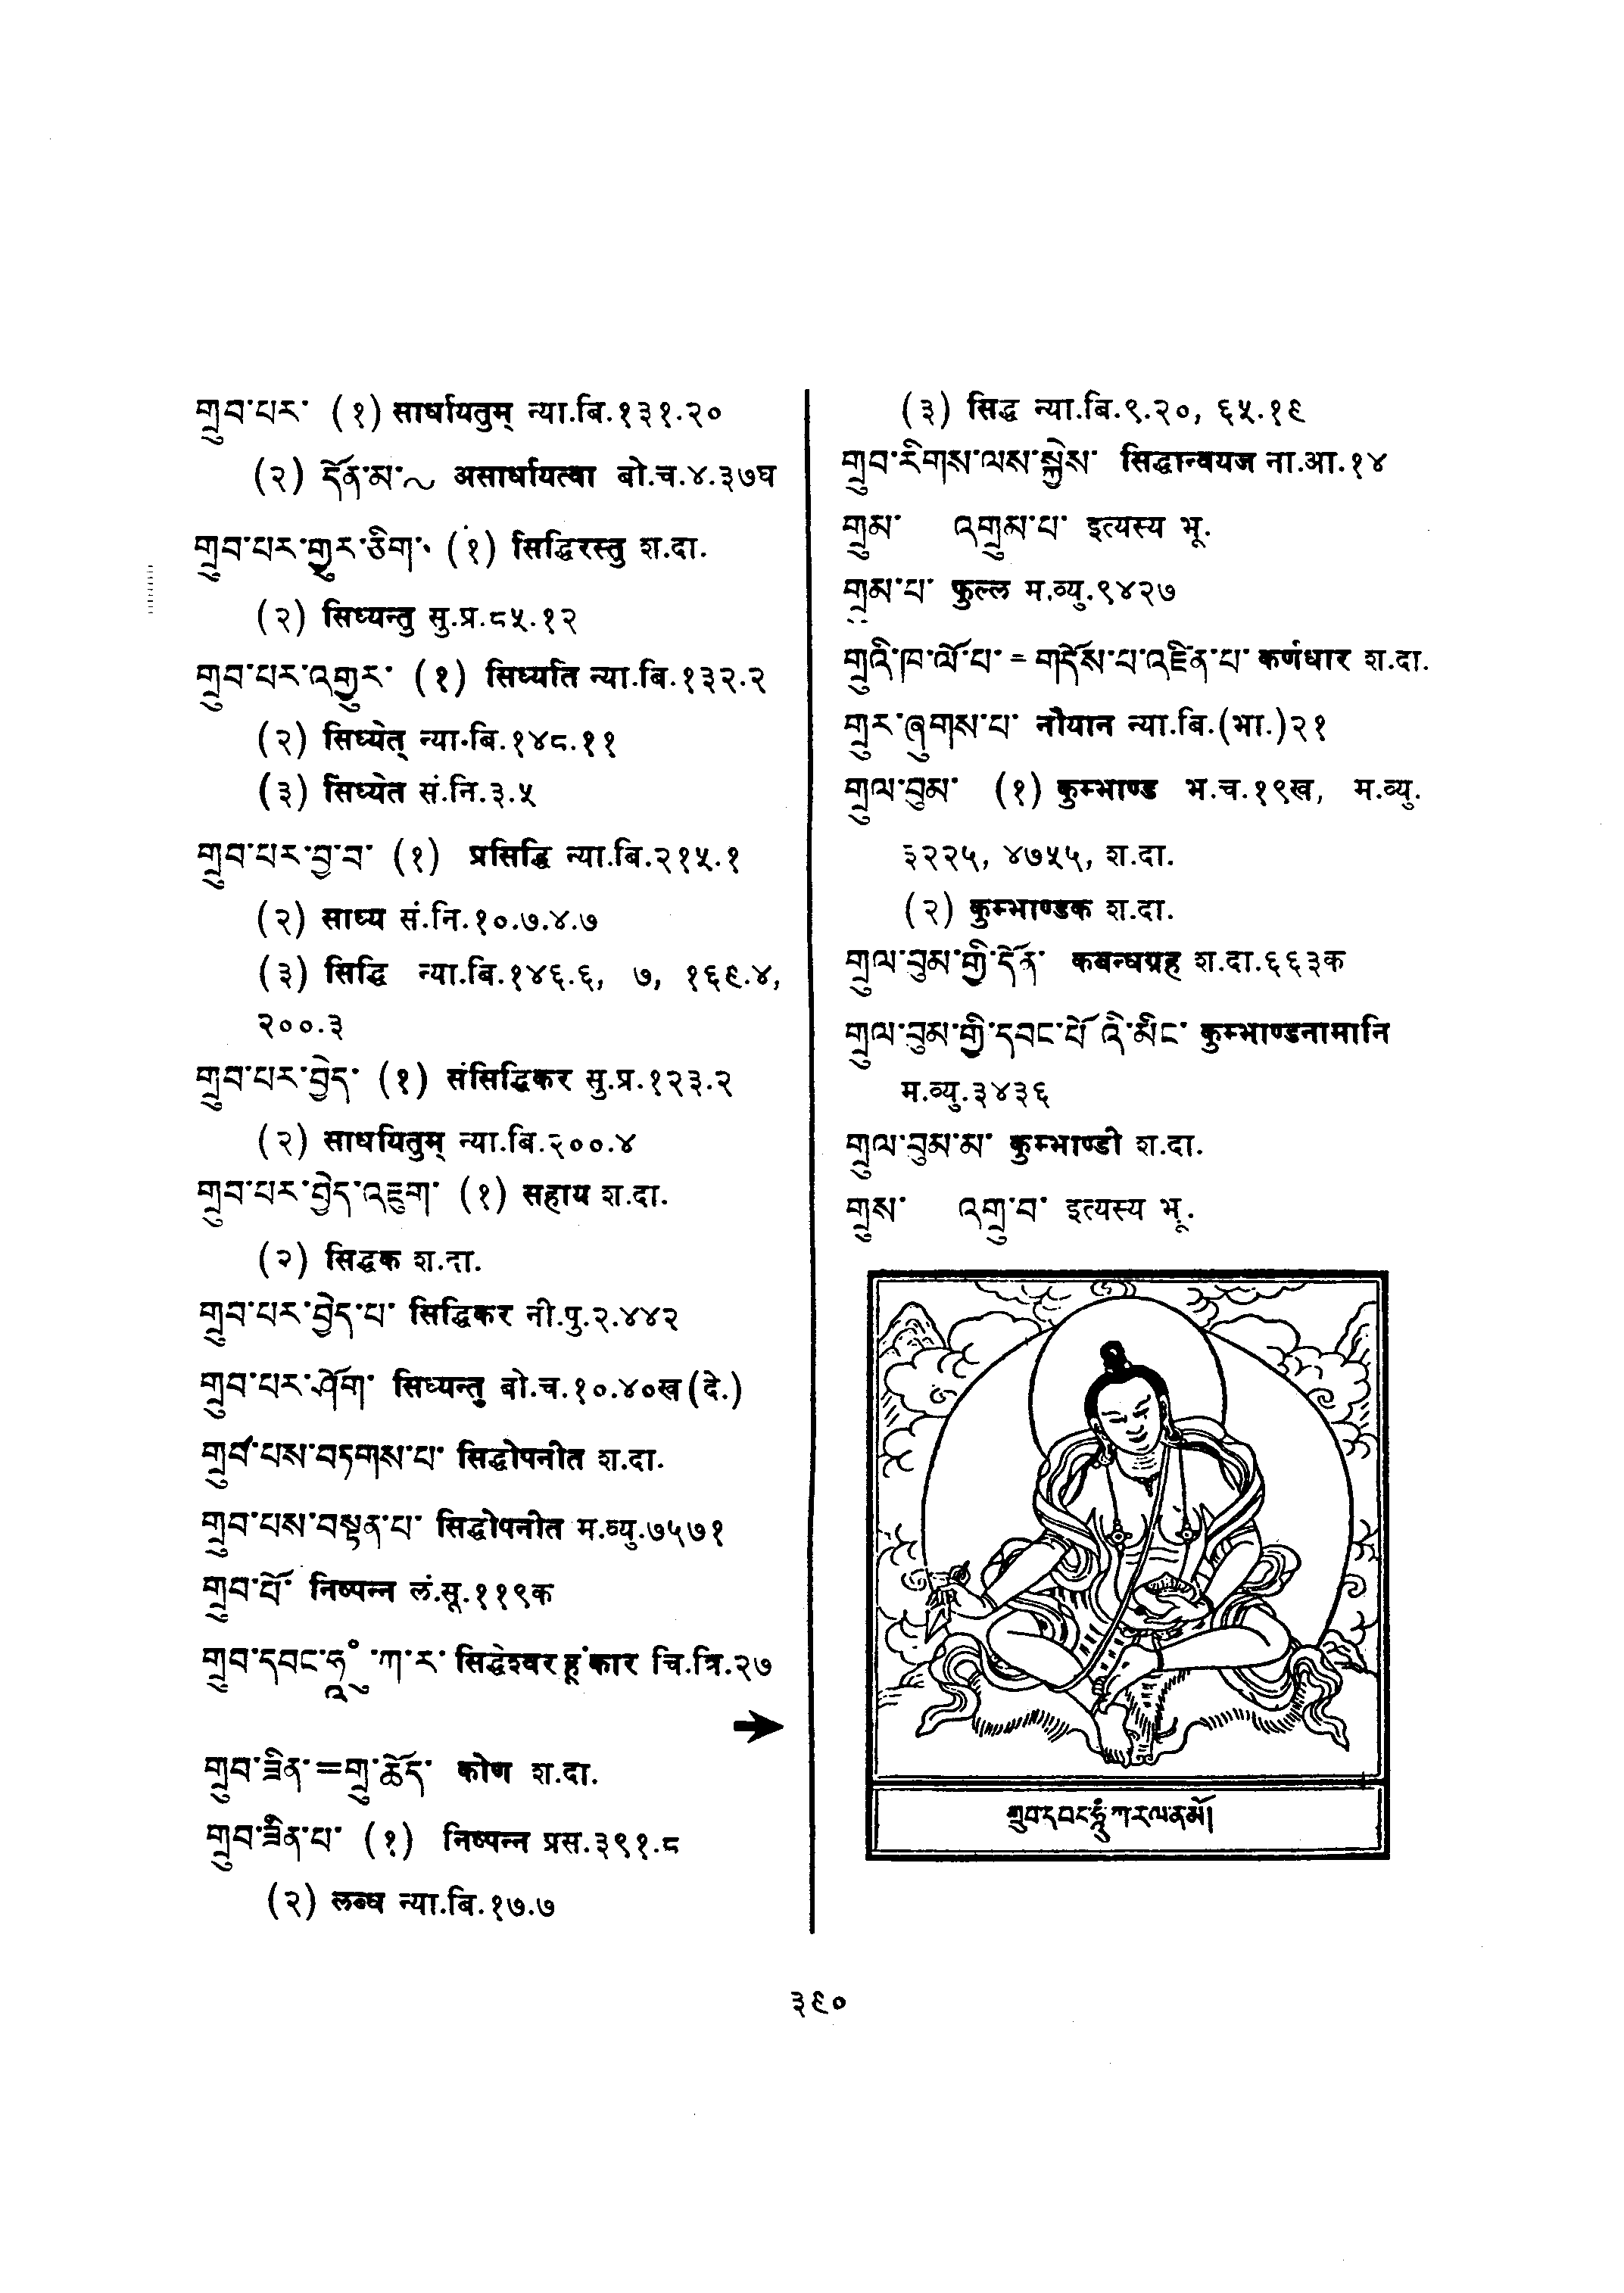 གྲུབ་པར་ (१) सार्धायतुम् न्या.बि.१३१.२०
(२) དོན་མ་～ असार्धायत्वा बो.च.४.३७घ
གྲུབ་པར་གྱུར་ཅིག་ (१) सिद्धिरस्तु श.दा.
(२) सिध्यन्तु सु.प्र.८५.१२
གྲུབ་པར་འགྱུར་ (१) सिध्यति न्या.बि.१३२.२
(२) सिध्येत् न्या.बि.१४८.११
(३) सिध्येत सं.नि.३.५
གྲུབ་པར་བྱ་བ་ (१) प्रसिद्धि न्या.बि.२१५.१
(२) साध्य सं.नि.१०.७.४.७
(३) सिद्धि न्या.बि.१४६.६, ७, १६९.४,
२००.३
གྲུབ་པར་བྱེད་ (१) संसिद्धिकर सु.प्र.१२३.२
(२) साधयितुम् न्या.बि.२००.४
གྲུབ་པར་བྱེད་འཇུག་ (१) सहाय श.दा.
(२) सिद्धक श.दा.
གྲུབ་པར་བྱེད་པ་ सिद्धिकर नी.पु.२.४४२
གྲུབ་པར་ཤོག་ सिध्यन्तु बो.च.१०.४०ख(दे.)
གྲུབ་པས་བཏགས་པ་ सिद्धोपनीत श.दा.
གྲུབ་པས་བསྟན་པ་ सिद्धोपनीत म.व्यु.७५७१
གྲུབ་པོ་ निष्पन्न लं.सू.११९क
གྲུབ་དབང་ཧཱུྂ་ཀ་ར་ सिद्धेश्वर हूंकार चि.त्रि.२७
➔
གྲུབ་ཟིན་=གྲུ་ཆོད་ कोण श.दा.
གྲུབ་ཟིན་པ་ (१) निष्पन्न प्रस.३९१.८
(२) लब्ध न्या.बि.१७.७
(३) सिद्ध न्या.बि.९.२०, ६५.१९
གྲུབ་རིགས་ལས་སྐྱེས་ सिद्धान्वयज ना.आ.१४
གྲུམ་ འགྲུམ་པ་ इत्यस्य भू.
གྲུམ་པ་ फुल्ल म.व्यु.९४२७
གྲུའི་ཁ་ལོ་པ་ = གདོས་པ་འཛིན་པ་ कर्णधार श.दा.
གྲུར་ཞུགས་པ་ नौयान न्या.बि.(भा.)२१
གྲུལ་བུམ་ (१) कुम्भाण्ड भ.च.१९ख, म.व्यु.
३२२५, ४७५५, श.दा.
(२) कुम्भाण्डक श.दा.
གྲུལ་བུམ་གྱི་དོན་ कबन्धग्रह श.दा.६६३क
གྲུལ་བུམ་གྱི་དབང་པོ་འི་མིང་ कुम्भाण्डनामानि
म.व्यु.३४३६
གྲུལ་བུམ་མ་ कुम्भाण्डी श.दा.
གྲུས་ འགྲུ་བ་ इत्यस्य भू.
གྲུབ་དབང་ཧཱུྂ་ཀ་ར་ལ་ན་མོ།
३९०